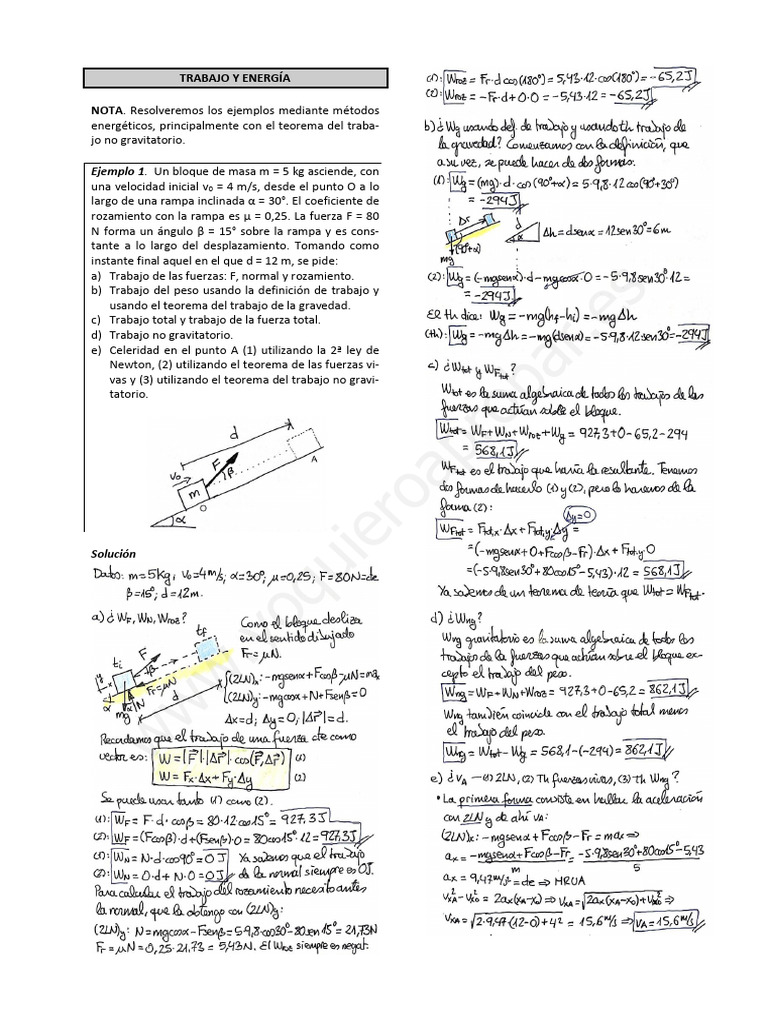 TRABAJO Y ENERGÍA
NOTA. Resolveremos los ejemplos mediante métodos
energéticos, principalmente con el teorema del traba-
jo no gravitatorio.
Ejemplo 1. Un bloque de masa m = 5 kg asciende, con
una velocidad inicial v₀ = 4 m/s, desde el punto O a lo
largo de una rampa inclinada α = 30°. El coeficiente de
rozamiento con la rampa es μ = 0,25. La fuerza F = 80
N forma un ángulo β = 15° sobre la rampa y es cons-
tante a lo largo del desplazamiento. Tomando como
instante final aquel en el que d = 12 m, se pide:
a) Trabajo de las fuerzas: F, normal y rozamiento.
b) Trabajo del peso usando la definición de trabajo y
usando el teorema del trabajo de la gravedad.
c) Trabajo total y trabajo de la fuerza total.
d) Trabajo no gravitatorio.
e) Celeridad en el punto A (1) utilizando la 2ª ley de
Newton, (2) utilizando el teorema de las fuerzas vi-
vas y (3) utilizando el teorema del trabajo no gravi-
tatorio.
d
F
β
v₀
m
O
A
α
Solución
Datos: m=5kg; v₀=4m/s; α=30°; μ=0,25; F=80N=cte
β=15°; d=12m.
a) ¿W_F, W_N, W_roz?
Como el bloque desliza
en el sentido dibujado
F_r=μN.
(2LN)x: -mgsenα+Fcosβ-μN=max
(2LN)y: -mgcosα+N+Fsenβ=0
Δx=d; Δy=0; |Δr|=d.
Recordamos que el trabajo de una fuerza cte como
vector es:
W=|F|·|Δr|·cos(F,Δr) (1)
W=Fx·Δx+Fy·Δy (2)
Se puede usar tanto (1) como (2).
(1): W_F=F·d·cosβ=80·12cos15°=927,3J
(2): W_F=(Fcosβ)·d+(Fsenβ)·0=80cos15°·12=927,3J
(1): W_N=N·d·cos90°=0J Ya sabemos que el trabajo
(2): W_N=0·d+N·0=0J de la normal siempre es 0J.
Para calcular el trabajo del rozamiento necesito antes
la normal, que la obtengo con (2LN)y:
(2LN)y: N=mgcosα-Fsenβ=5·9,8·cos30°-80sen15°=21,73N
F_r=μN=0,25·21,73=5,43N. El W_roz siempre es negat.
(1): W_roz=F_r·d cos(180°)=5,43·12·cos(180°)=-65,2J
(2): W_roz=-F_r·d+0·0=-5,43·12=-65,2J
b) ¿W_g usando def. de trabajo y usando th trabajo de
la gravedad? Comenzamos con la definición, que
a su vez, se puede hacer de dos formas.
(1): W_g=(mg)·d·cos(90°+α)=5·9,8·12cos(90°+30°)
=-294J
Δr
mg
(90°+α)
d
α
Δh=dsenα=12sen30°=6m
(2): W_g=(-mgsenα)·d-mgcosα·0=-5·9,8sen30°·12=
=-294J
El th dice: W_g=-mg(h_f-h_i)=-mgΔh
(th): W_g=-mgΔh=-mg(dsenα)=-5·9,8·12sen30°=-294J
c) ¿W_tot y W_Ftot?
W_tot es la suma algebraica de todos los trabajos de las
fuerzas que actúan sobre el bloque.
W_tot=W_F+W_N+W_roz+W_g=927,3+0-65,2-294
=568,1J
W_Ftot es el trabajo que haría la resultante. Tenemos
dos formas de hacerlo (1) y (2), pero lo haremos de la
forma (2):
Δy=0
W_Ftot=F_tot,x·Δx+F_tot,y·Δy=
=(-mgsenα+0+Fcosβ-F_r)·Δx+F_tot,y·0
=(-5·9,8sen30°+80cos15°-5,43)·12=568,1J
Ya sabemos de un teorema de teoría que W_tot=W_Ftot.
d) ¿W_ng?
W_ng gravitatorio es la suma algebraica de todos los
trabajos de la fuerzas que actúan sobre el bloque ex-
cepto el trabajo del peso.
W_ng=W_F+W_N+W_roz=927,3+0-65,2=862,1J
W_ng también coincide con el trabajo total menos
el trabajo del peso.
W_ng=W_tot-W_g=568,1-(-294)=862,1J
e) ¿v_A — (1) 2LN, (2) Th fuerzas vivas, (3) th W_ng?
• La primera forma consiste en hallar la aceleración
con 2LN y de ahí v_A:
(2LN)x: -mgsenα+Fcosβ-F_r=max⇒
ax=(-mgsenα+Fcosβ-F_r)/m=(-5·9,8sen30°+80cos15°-5,43)/5
ax=9,47m/s²=cte⇒HRUA
v²xA-v²x0=2ax(xA-x0)⇒vxA=√(2ax(xA-x0)+v²x0)⇒
vxA=√(2·9,47·(12-0)+4²)=15,6m/s⇒vA=15,6m/s